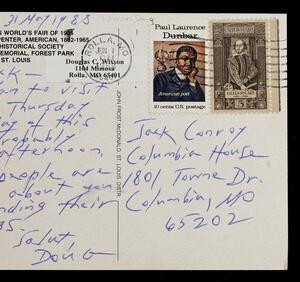 31 May 1983
WORLD'S FAIR OF 190
PENTER, AMERICAN, 1862-1965
HISTORICAL SOCIETY
MEMORIAL, FOREST PARK
ST. LOUIS
Douglas C. Wixson
1104 Mimosa
Rolla, MO 65401
ROLLA, MO
JUN
1
Paul Laurence
Dunbar
American poet
10 cents U.S. postage
SHAKESPEARE
5
JOHN FROST MCDONALD, ST. LOUIS, DISTR.
to visit
Thursday
of this
robably
ternoon.
eople are
about you
nding their
Salut,
Doug
Jack Conroy
Columbia House
1801 Towne Dr.
Columbia, MO
65202